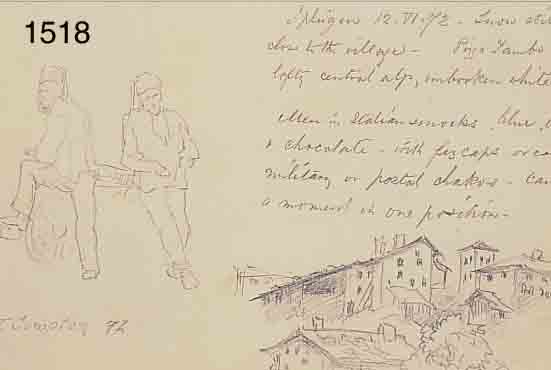 1518
Splügen 12.VI.72 - Snow still
close to the village - Pizzo Tambo
lofty central alp, unbroken white
Men in Italian smocks, blue,
& chocolate - with fez caps or
military or postal shakos -
a moment in one position -
72